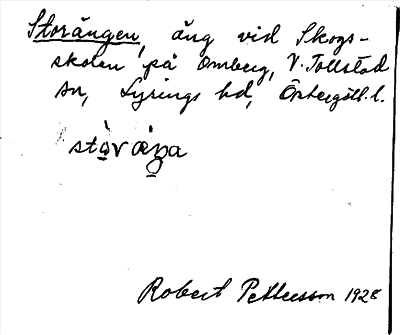 Storängen, äng vid Skogs-
skolen på Omberg, V. Tollstad
sn, Lysings hd, Östergötl. l.
Robert Pettersson 1928